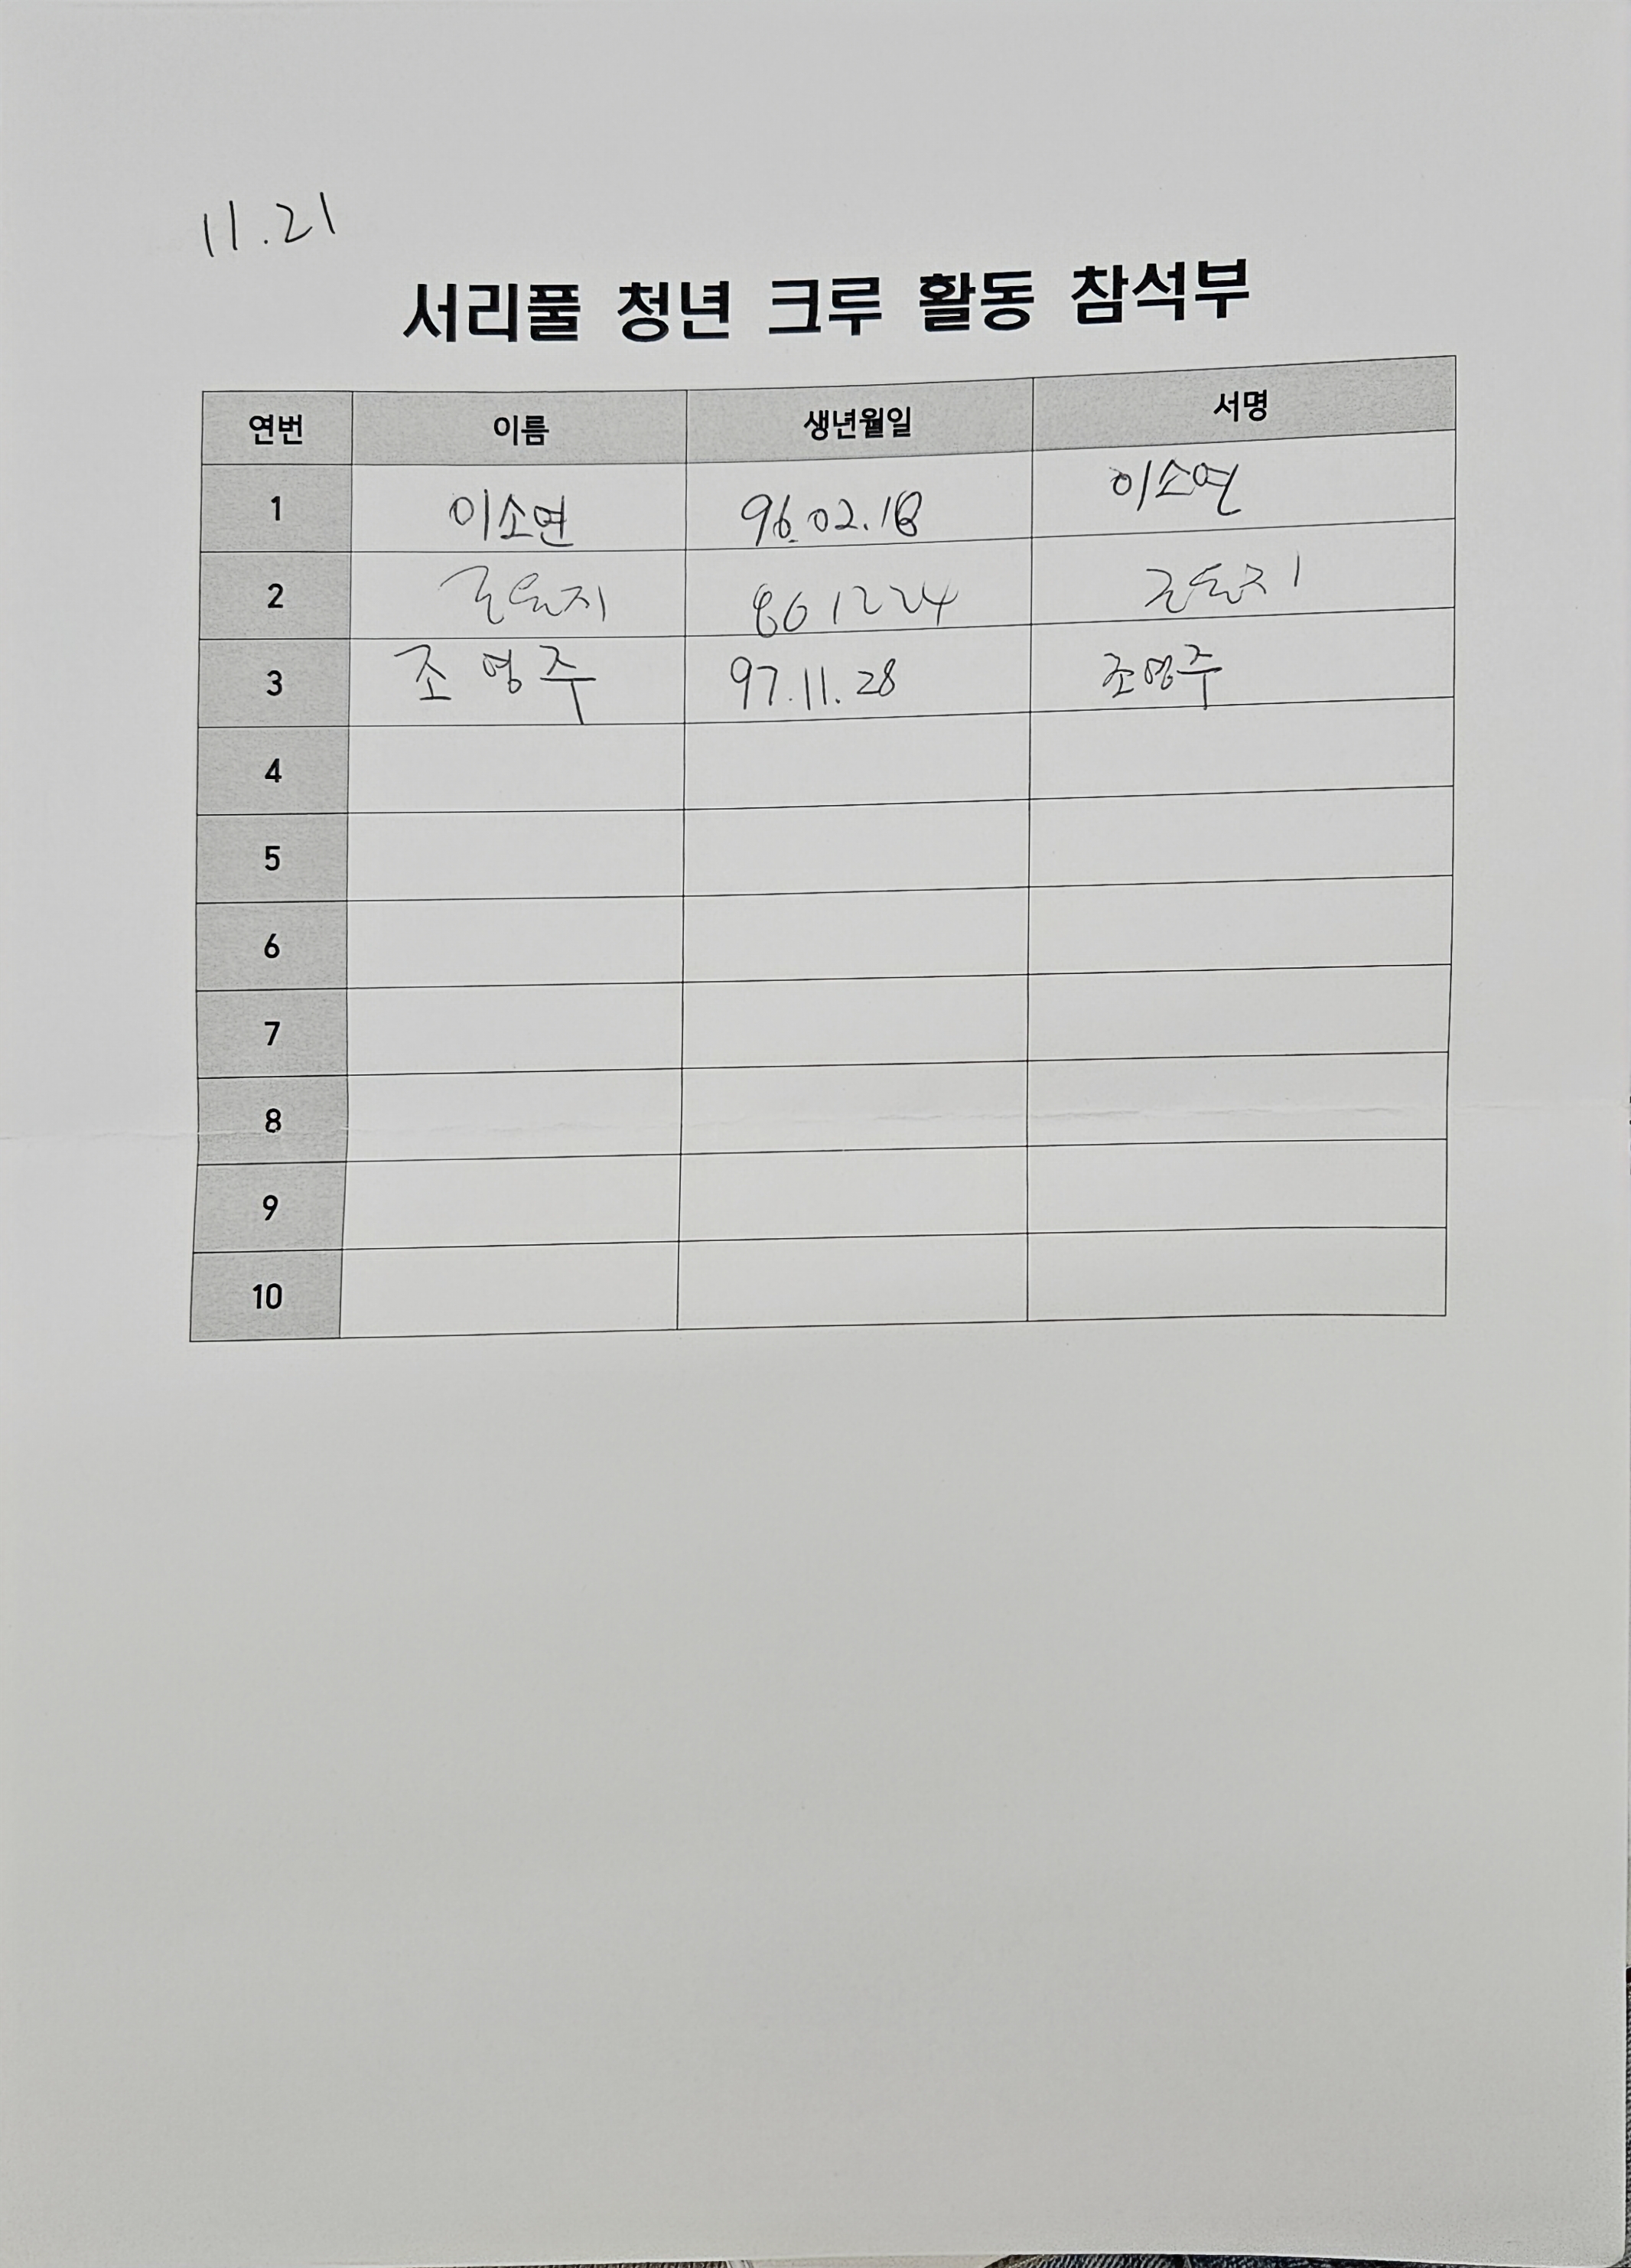 11.21
서리풀 청년 크루 활동 참석부
연번 이름 생년월일 서명
1 이소연 96.02.18 이소연
2 861224
3 조영주 97.11.28 조영주
4
5
6
7
8
9
10